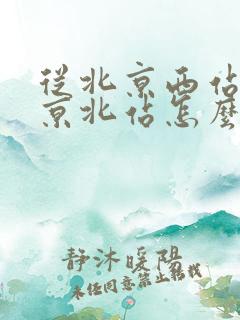 從北京西站
京北站怎麼
静沐暖陽
未经同意禁止转载